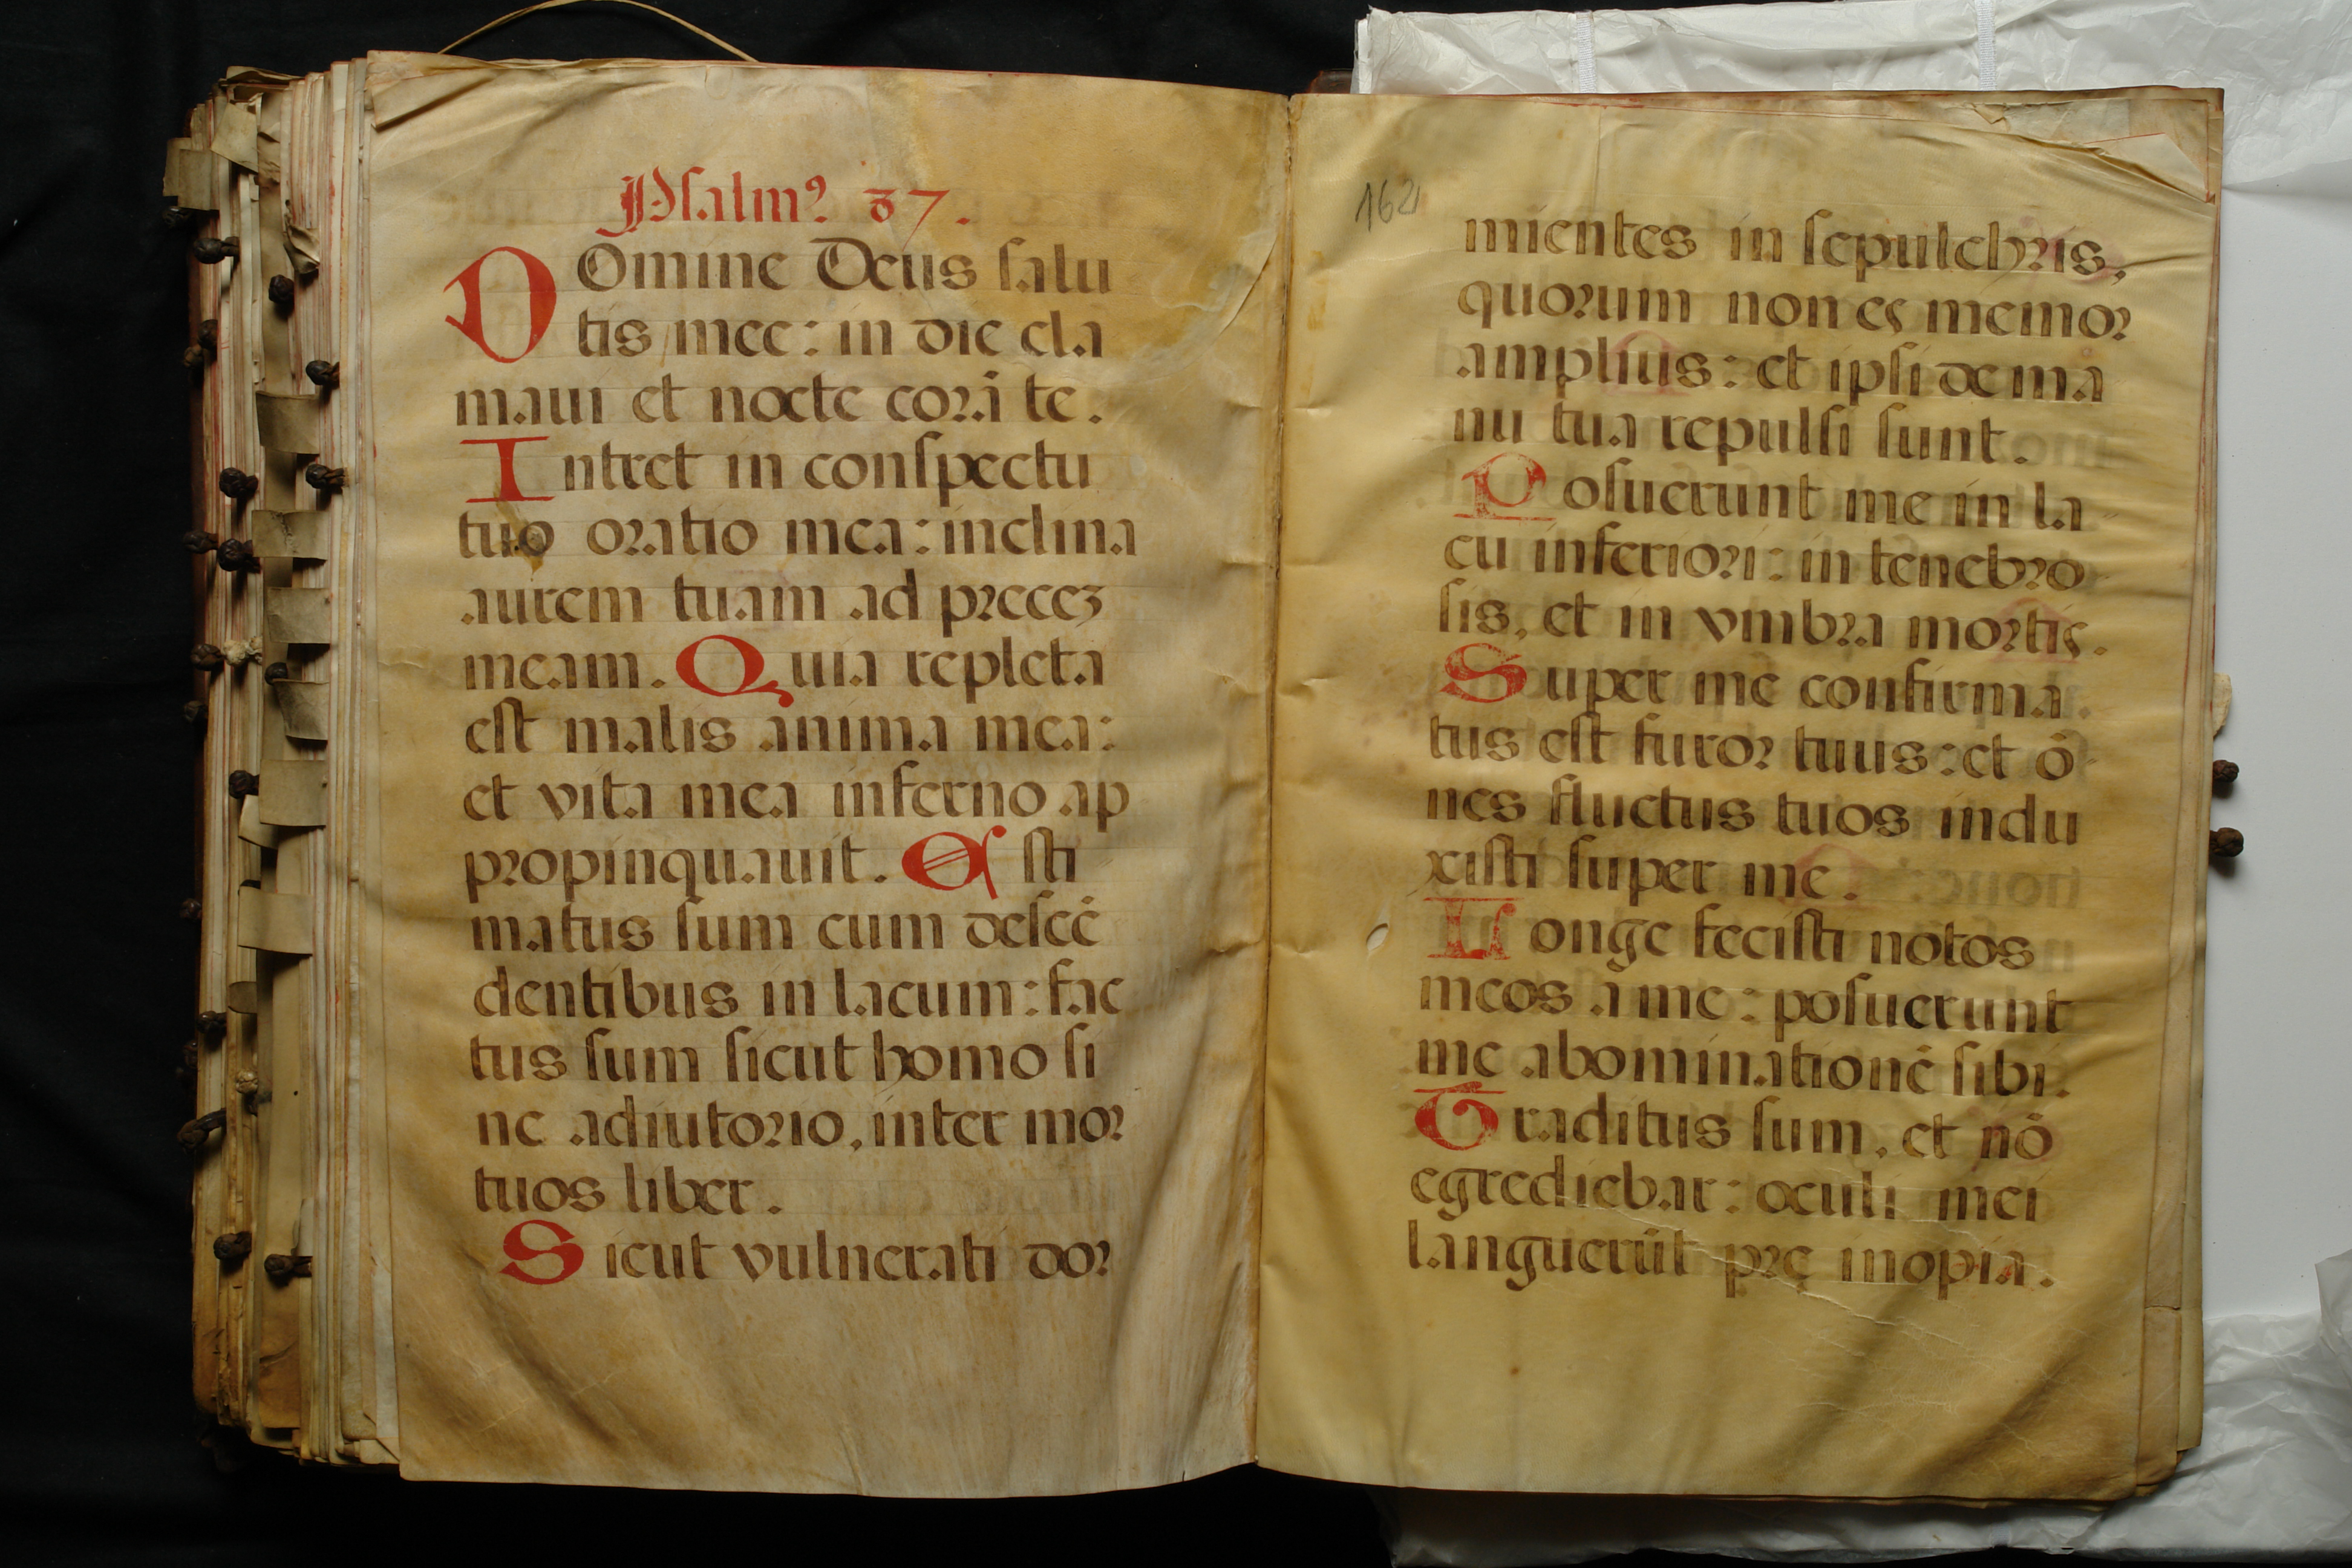 Psalmꝰ 37.
DOmine Deus salu
tis mee: in die cla
maui et nocte corā te.
Intret in conspectu
tuo oratio mea: inclina
aurem tuam ad precez
meam. Quia repleta
est malis anima mea:
et vita mea inferno ap
propinquauit. Esti
matus sum cum descē
dentibus in lacum: fac
tus sum sicut homo si
ne adiutorio, inter mor
tuos liber.
Sicut vulnerati dor
162
mientes in sepulchris,
quorum non es memor
amplius: et ipsi de ma
nu tua repulsi sunt.
Posuerunt me in la
cu inferiori: in tenebro
sis, et in vmbra mortis.
Super me confirma
tus est furor tuus: et ō
nes fluctus tuos indu
xisti super me.
Longe fecisti notos
meos a me: posuerunt
me abominationē sibi.
Traditus sum, et nō
egrediebar: oculi mei
languerūt prę inopia.